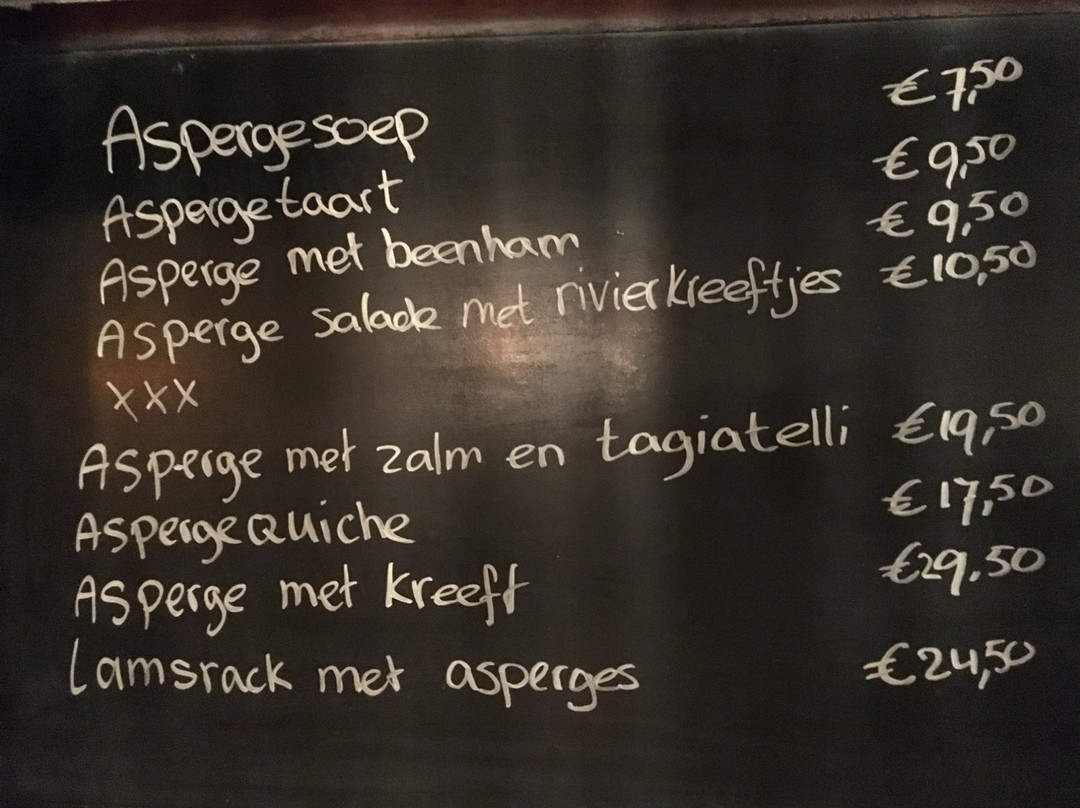 Aspergesoep €7,50
Aspergetaart €9,50
Asperge met beenham €9,50
Asperge salade met rivierkreeftjes €10,50
xxx
Asperge met zalm en tagiatelli €19,50
Aspergequiche €17,50
Asperge met kreeft €29,50
Lamsrack met asperges €24,50